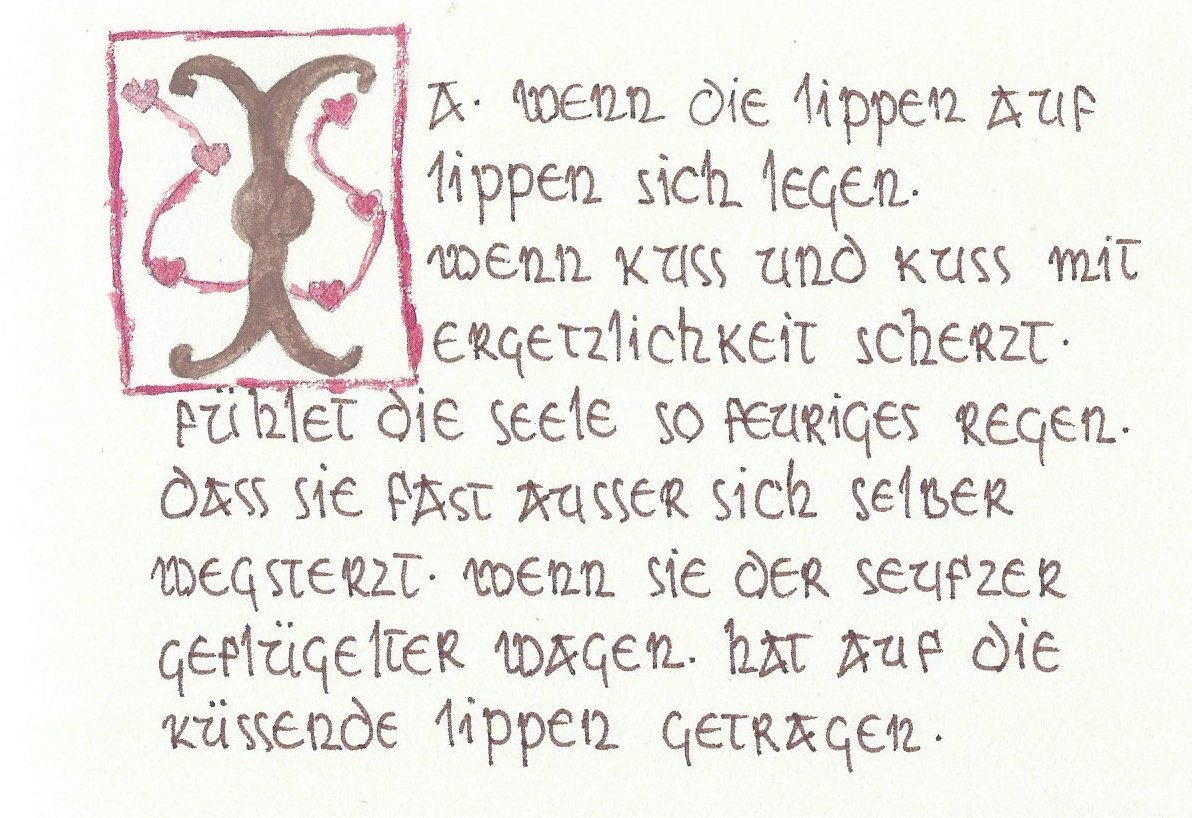 IA. WENN DIE LIPPEN AUF
LIPPEN SICH LEGEN.
WENN KUSS UND KUSS MIT
ERGETZLICHKEIT SCHERZT.
FÜHLET DIE SEELE SO FEURIGES REGEN.
DASS SIE FAST AUSSER SICH SELBER
WEGSTERZT. WENN SIE DER SEUFZER
GEFLÜGELTER WAGEN. HAT AUF DIE
KÜSSENDE LIPPEN GETRAGEN.